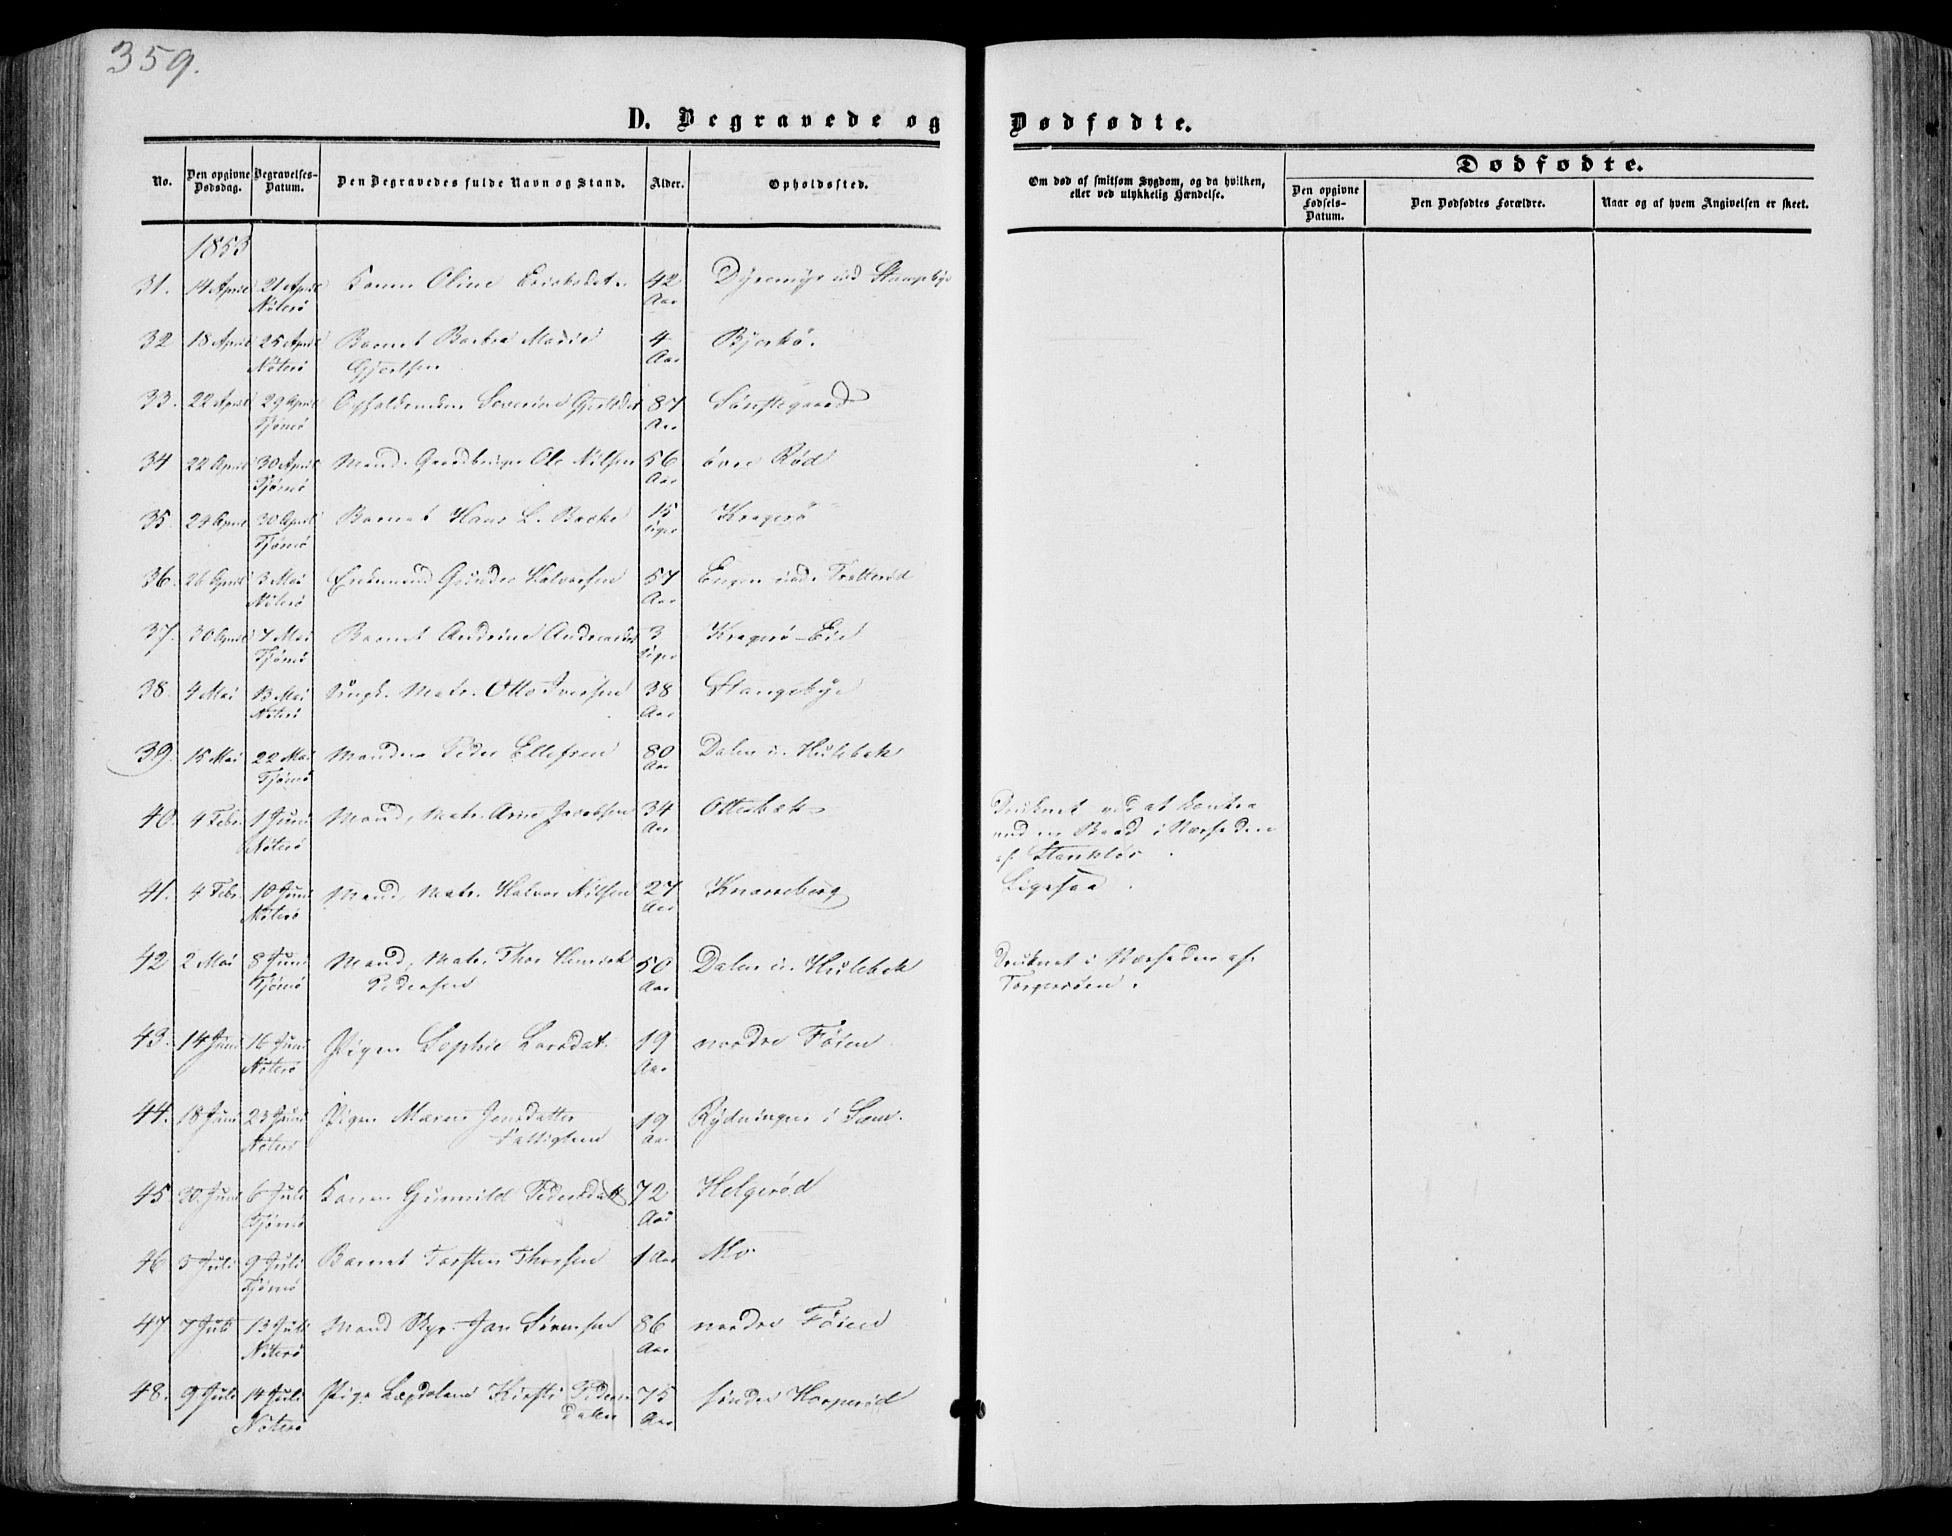 359.
D. Begravede og Dødfødte.
No.
Den opgivne Dødsdag.
Begravelses-Datum.
Den Begravedes fulde Navn og Stand.
Alder.
Opholdssted.
Om død af smitsom Sygdom, og da hvilken, eller ved ulykkelig Hændelse.
Dødfødte.
Den opgivne Fødsels-Datum.
Den Dødfødtes Forældre.
Naar og af hvem Angivelsen er skeet.
1853
31. 14 April 21 April Konen Oline Ericksdat. 42 Dyremyr
Nøterø Aar
32 18 April 25 April Barnet Marie 4 Bjerkø.
Nøterø Gjertsen Aar
33. 22 April 29 April Severine 87
Tjømø Aar
34 22 April 30 April Mand. Gaardbruger Ole Nilsen 56 øvre Rød
Tjømø Aar
35 24 April 30 April Barnet Hans L. Bache 15 Kragerø
Tjømø Uger
36. 26 April 3 Mai Enkemand Gunder Halvorsen 57 Engen
Nøterø Aar
37. 30 April 7 Mai Barnet Andrine 3 Kragerø-Eie
Tjømø Uger
38. 4 Mai 13 Mai Ungk. Matr. Otto Iversen 38 Stangebye
Nøterø Aar
39. 15 Mai 22 Mai Manden Peder Ellefsen 80 Dalen u. Hulebak
Tjømø Aar
40. 4 Febr. 1 Juni Mand, Matr. Arne Jacobsen 34 Otterbæk Druknet ved at kantre
Nøterø Aar med en Baad i Nærheden
af
41. 4 Febr. 10 Juni Mand Matr. Halvor Nilsen 27 Knarreberg Ligesaa.
Nøterø Aar
42 2 Mai 8 Juni Mand, Matr. Thor Henrich 50 Dalen u. Hulebak Druknet i Nærheden af
Tjømø Pedersen Aar Torgersøen.
43. 14 Juni 16 Juni Pigen Sophie Larsdat. 19 nordre Føien
Nøterø Aar
44. 18 Juni 23 Juni Pigen Maren Jensdatter 19 Rydningen i Sem.
Nøterø Fattiglem Aar
45 30 Juni 6 Juli Konen Gunnild Pedersdatt. 72 Helgerød
Tjømø Aar
46 5 Juli 9 Juli Barnet Torsten Thorsen 1 Aar Mo
Tjømø
47 7 Juli 13 Juli Mand Jan Sørensen 86 nordre Føien
Nøterø Aar
48. 9 Juli 14 Juli Pige Kirsti Peders 75 søndre
Nøterø datter Aar